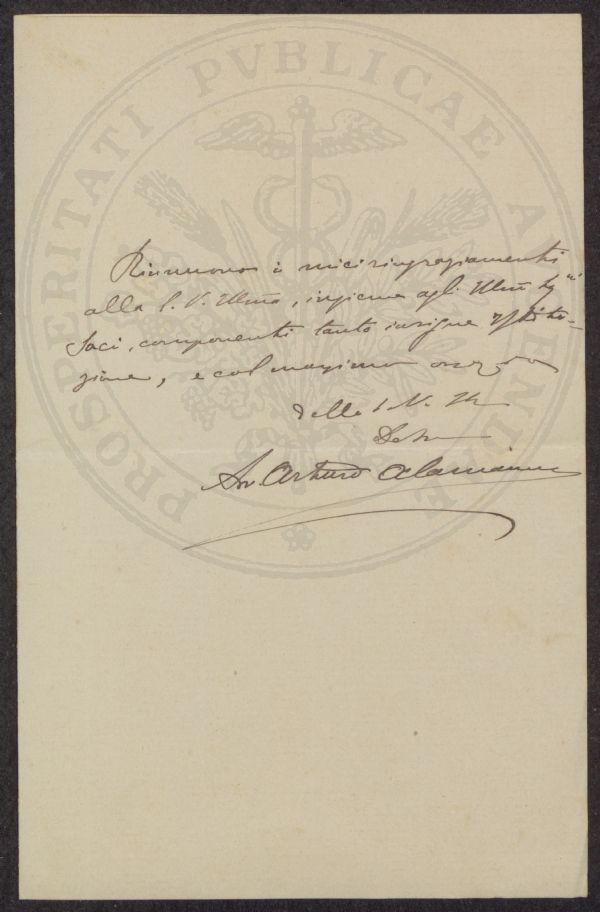 PROSPERITATI PVBLICAE AVGENDAE
Rinnuovo i miei ringraziamenti
alla S. V. Illma, insieme agli Illmi Sigri
Soci, componenti tanto insigne Istitu=
zione, e col massimo
della S. V. Ill
Devmo
Avv. Arturo Alamanni